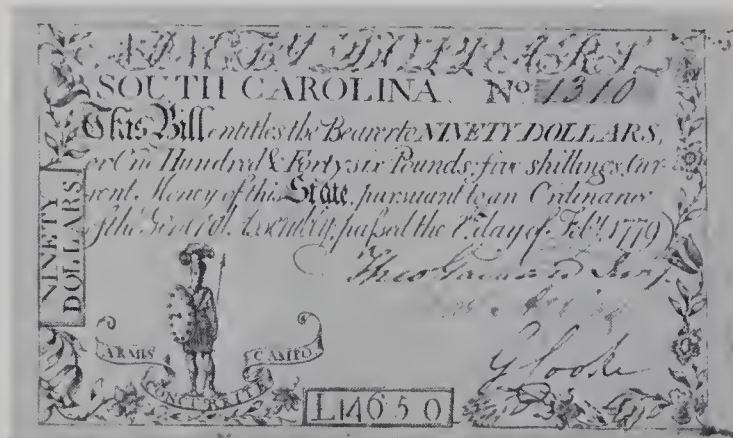 SOUTH CAROLINA. No 1310
This Bill entitles the Bearer to NINETY DOLLARS,
or One Hundred & Forty six Pounds, five shillings, Cur-
rent Money of this State, pursuant to an Ordinance
of the General Assembly, passed the 8th day of Feby. 1779
NINETY
DOLLARS
ARMIS
CONCURRITE
CAMPO
L 14650